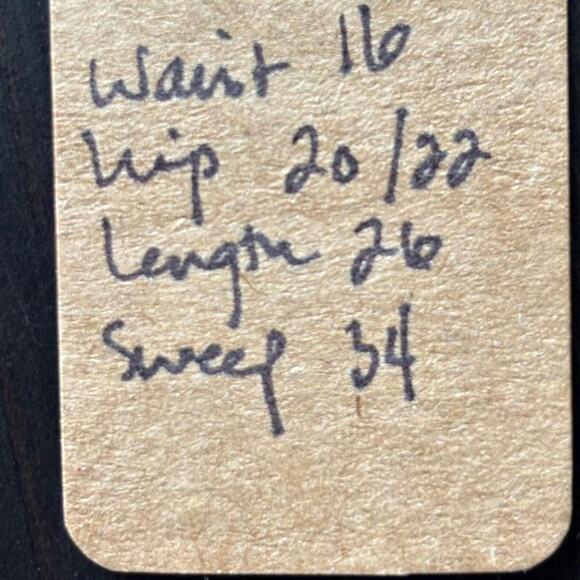 Waist 16
hip 20/22
Length 26
Sweep 34